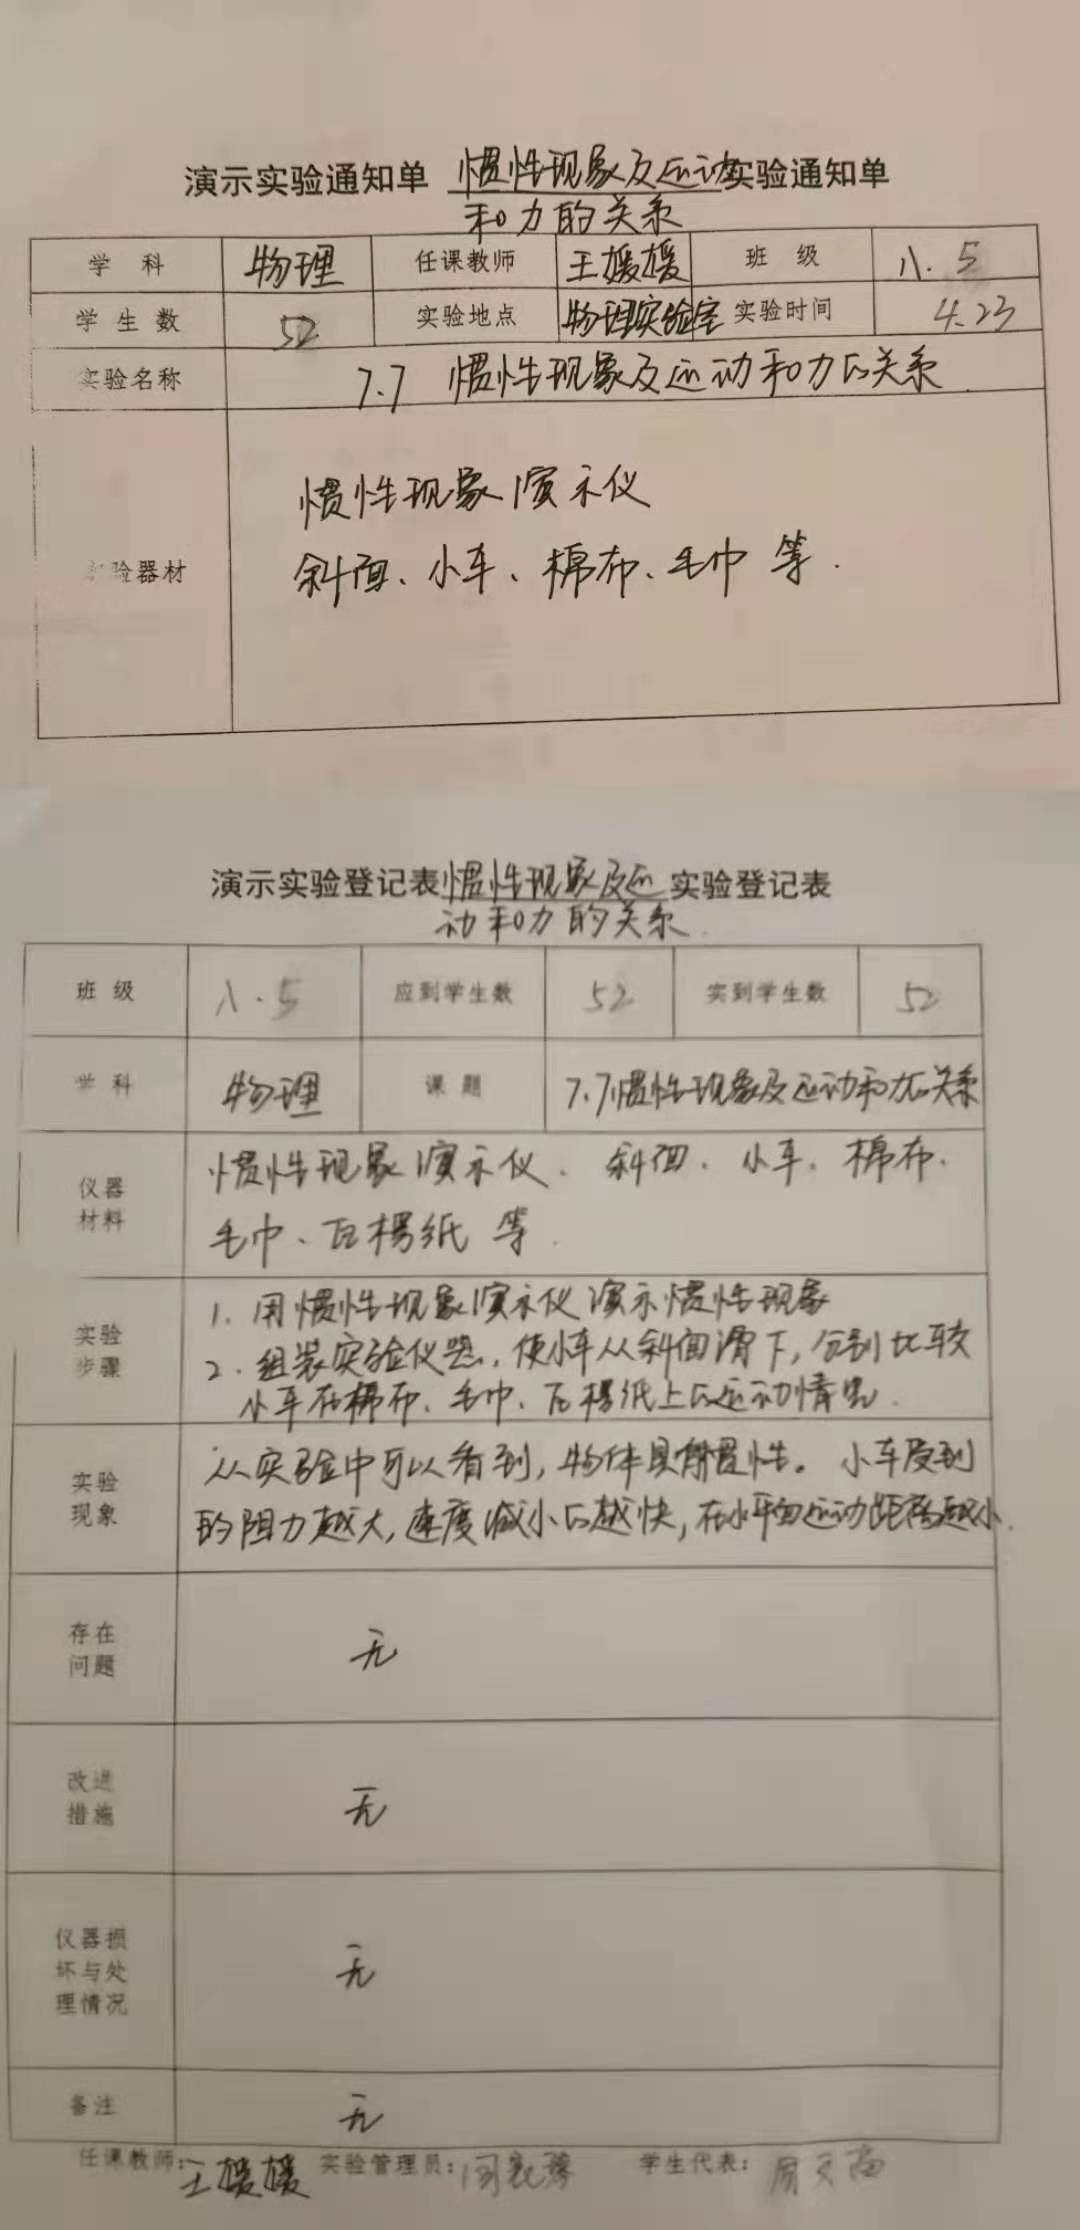 演示实验通知单 惯性现象及运动实验通知单
和力的关系
学 科 物理 任课教师 王媛媛 班 级 八.5
学生数 52 实验地点 物理实验室 实验时间 4.23
实验名称 7.7 惯性现象及运动和力的关系
惯性现象演示仪
实验器材 斜面、小车、棉布、毛巾 等.
演示实验登记表惯性现象及运 实验登记表
动和力的关系.
班 级 八.5 应到学生数 52 实到学生数 52
学 科 物理 课 题 7.7惯性现象及运动和力的关系
仪器
材料
惯性现象演示仪、斜面、小车、棉布、
毛巾、瓦楞纸 等.
实验
步骤
1. 用惯性现象演示仪演示惯性现象
2. 组装实验仪器,使小车从斜面滑下,分别比较
小车在棉布、毛巾、瓦楞纸上的运动情况.
实验
现象
从实验中可以看到,物体具有惯性。小车受到
的阻力越大,速度减小的越快,在水平面运动距离越小.
存在
问题
无
改进
措施
无
仪器损
坏与处
理情况
无
备注 无
任课教师:王媛媛 实验管理员: 学生代表: